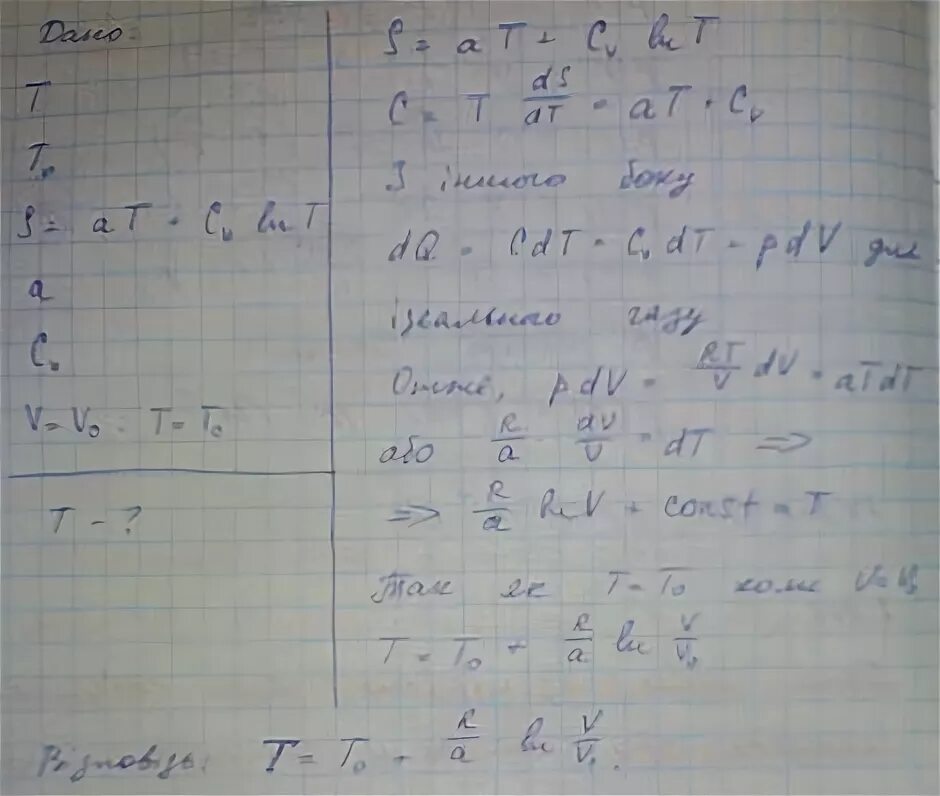 Дано:
T
T₀
S = aT + Cᵥ ln T
a
Cᵥ
V = V₀ : T = T₀
T - ?
S = aT + Cᵥ ln T
C = T dS/dT = aT + Cᵥ
З іншого боку
dQ = CdT = CᵥdT + pdV для
ідеального газу
Отже, pdV = RT/V dV = aTdT
або R/a dV/V = dT ⇒
⇒ R/a ln V + const = T
Так як T = T₀ коли V = V₀
T = T₀ + R/a ln V/V₀
Відповідь: T = T₀ + R/a ln V/V₀.